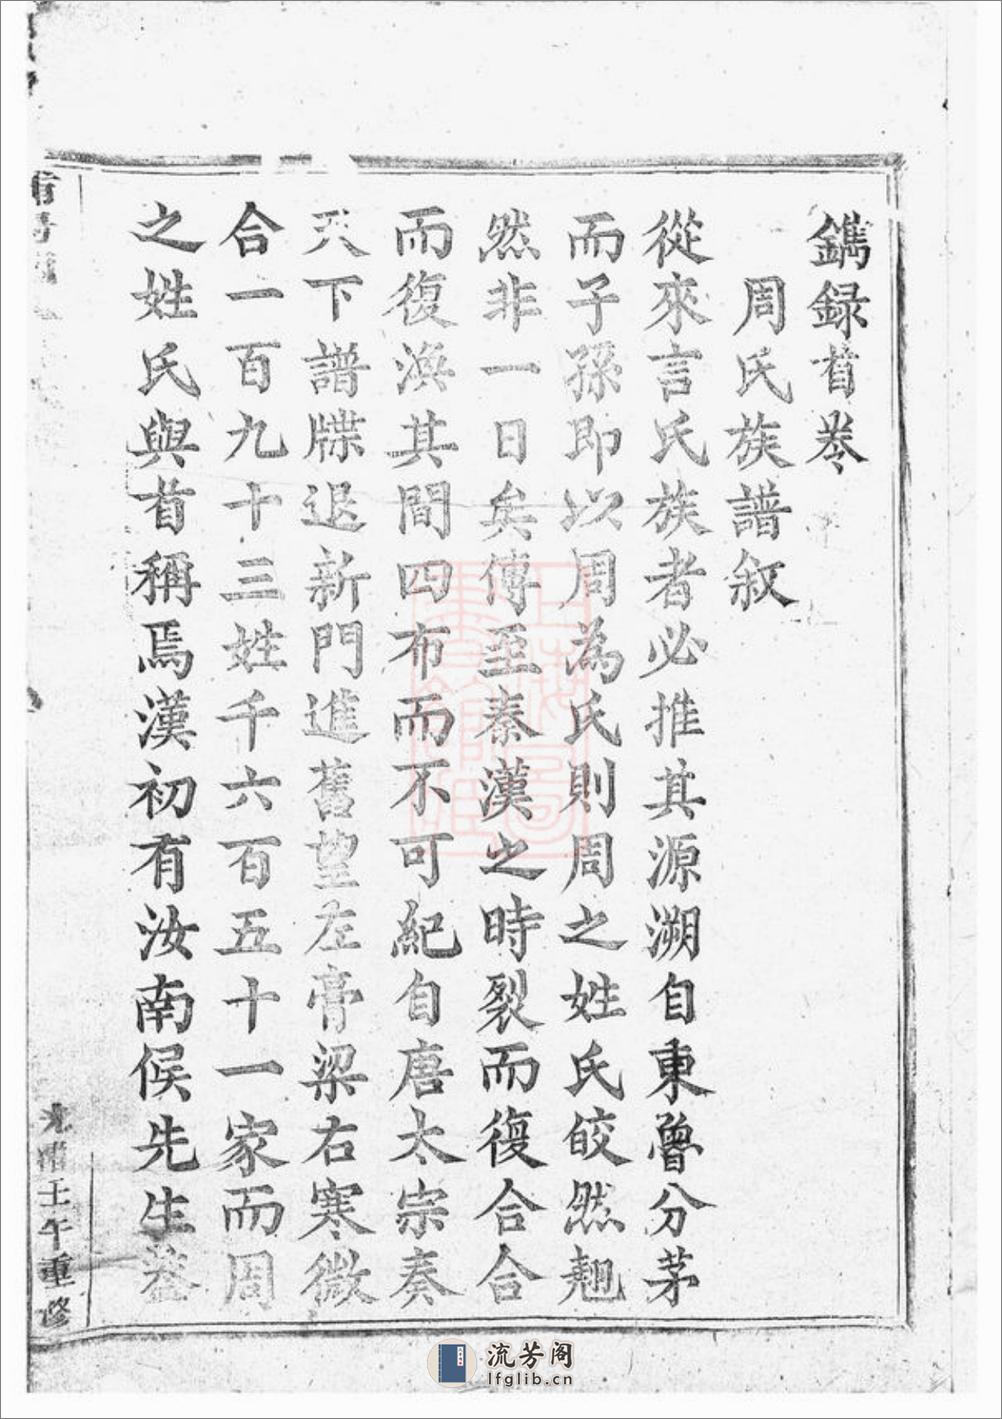 鐫録首卷
周氏族譜叙
從來言氏族者必推其源溯自東魯分茅
而子孫即以周為氏則周之姓氏皎然翹
然非一日矣傳至秦漢之時裂而復合合
而復渙其間四布而不可紀自唐太宗奏
天下譜牒退新門進舊望左膏梁右寒微
合一百九十三姓千六百五十一家而周
之姓氏與首稱焉漢初有汝南侯先生
光緒壬午重修
流芳阁
lfglib.cn